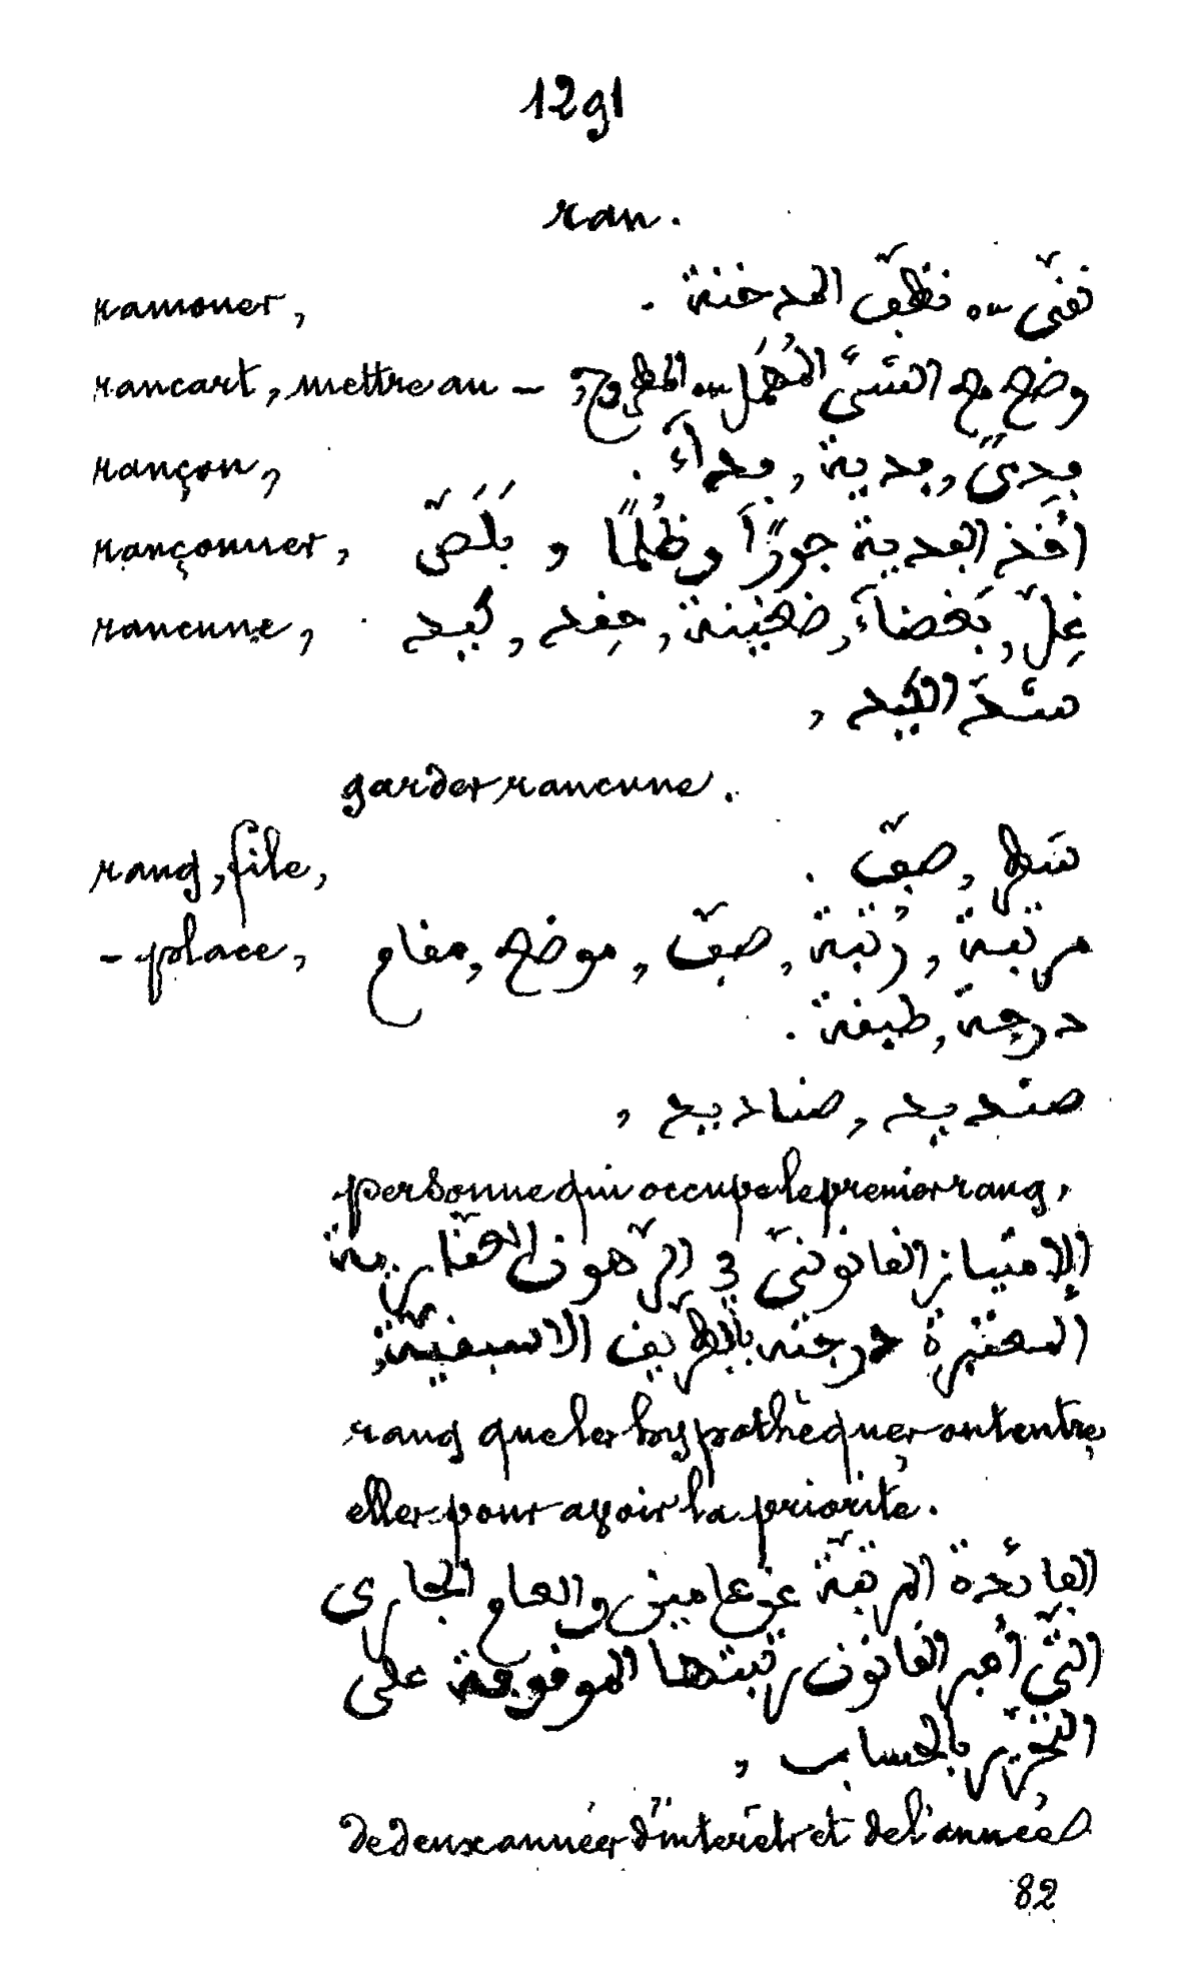 1291
ran.
ramoner, نقّى ou نظّف المدخنة .
rancart, mettre au – وضع مع الشئ المُهمَل ou المطروح,
rançon, فِدىً, فدية, فداَء .
rançonner, اخَذ الفدية جورًا وظُلمًا و بَلَصّ
rancune, غِلّ, بَغضاَء, ضغينة, حِقد, كيد
شدَ الكيد ,
garder rancune.
rang, file, سَطر, صفّ .
– place, مرتبة, رُتبة, صفّ, موضع, مقام
درجة, طبقة .
صنديد, صناديد ,
personne qui occupe le premier rang,
الإمتياز القانونيّ في الرّهون العقّارية
المعتبرة درجته بالطّريق الاسبقيّة,
rang que les hypothèques ont entre
elles pour avoir la priorité.
الفائدة المرتّبة عن عامين والعام الجاري
التّي أمر القانون رتبتها الموقوفة على
التّحرير بالحساب ,
de deux années d'intérêts et de l'année
82